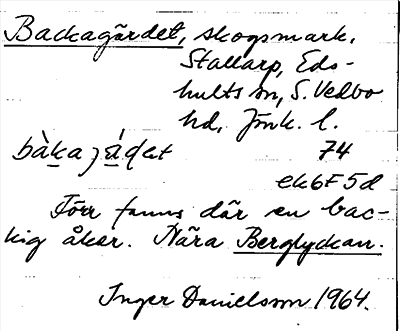 Backagärdet, skogsmark.
Stallarp, Eds-
hults sn, S. Vedbo
hd, Jönk. l.
74
ek6F5d
Förr fanns där en bac-
kig åker. Nära Berglyckan.
Inger Danielsson 1964.